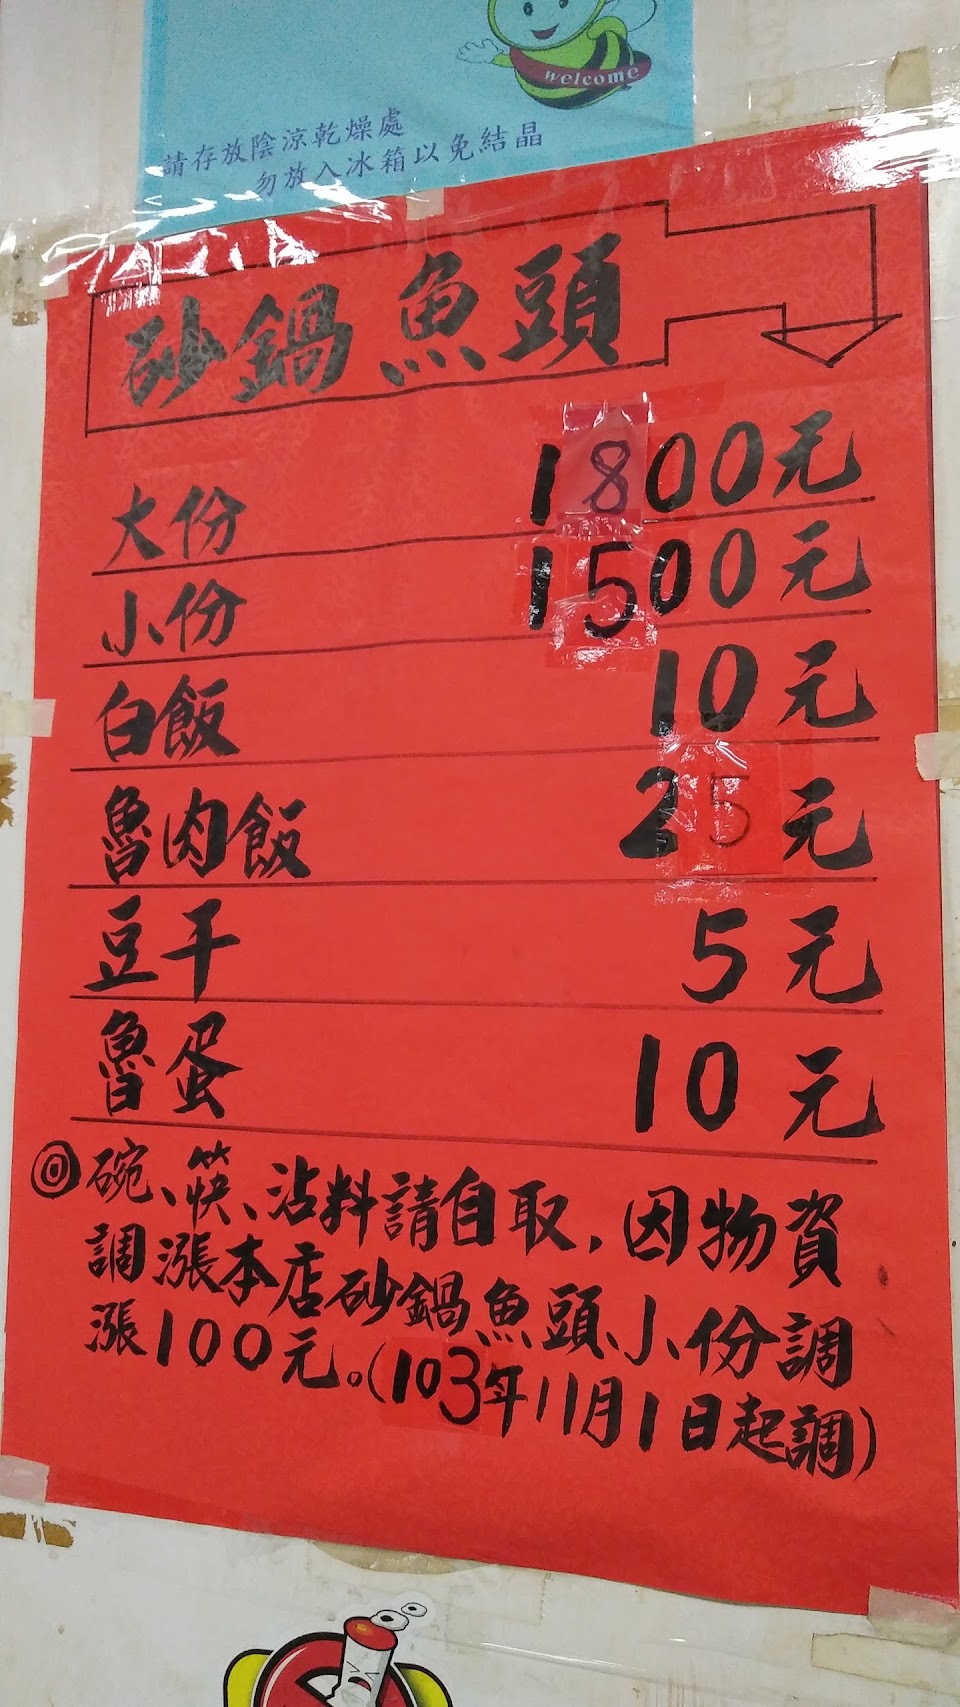 welcome
請存放陰涼乾燥處
勿放入冰箱以免結晶
砂鍋魚頭
大份 1800元
小份 1500元
白飯 10元
魯肉飯 25元
豆干 5元
魯蛋 10元
◎碗、筷、沾料請自取,因物資
調漲本店砂鍋魚頭、小份調
漲100元。(103年11月1日起調)